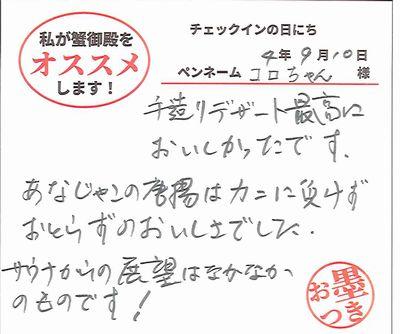 私が蟹御殿を
オススメ
します！
チェックインの日にち
4年9月10日
ペンネーム コロちゃん 様
手造りデザート最高に
おいしかったです.
あなじゃこの唐揚はカニに負けず
おとらずのおいしさでした.
サウナからの展望はなかなか
のものです!
お墨つき